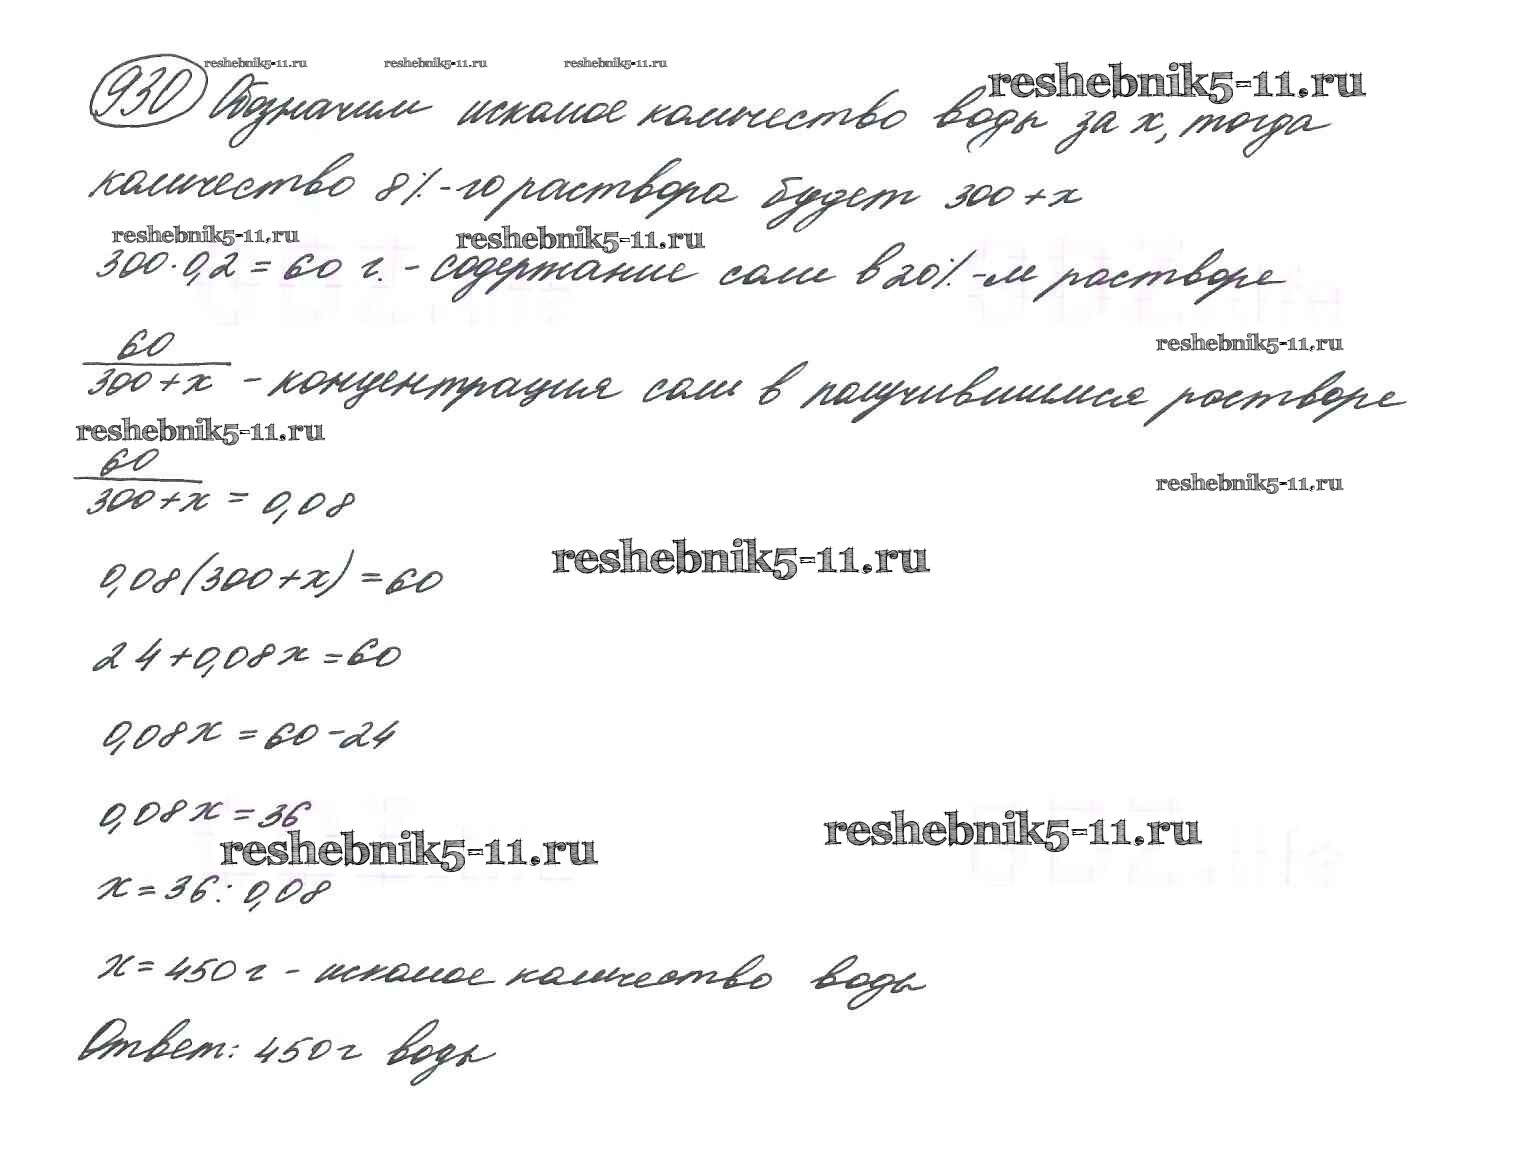 reshebnik5-11.ru reshebnik5-11.ru reshebnik5-11.ru
reshebnik5-11.ru
930 Обозначим искомое количество воды за x, тогда
количество 8%-го раствора будет 300+x
reshebnik5-11.ru reshebnik5-11.ru
300·0,2=60 г. - содержание соли в 20%-м растворе
reshebnik5-11.ru
60
300+x - концентрация соли в получившимся растворе
reshebnik5-11.ru
60
300+x = 0,08
reshebnik5-11.ru
0,08(300+x)=60
reshebnik5-11.ru
24+0,08x=60
0,08x=60-24
0,08x=36
reshebnik5-11.ru reshebnik5-11.ru
x=36:0,08
x=450г - искомое количество воды
Ответ: 450г воды